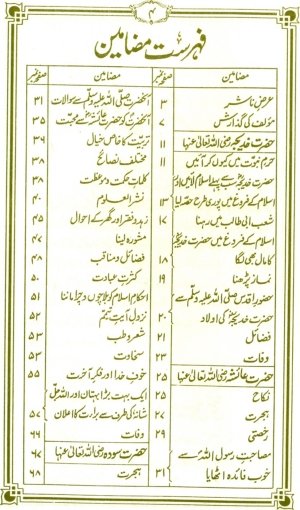 ۴
فہرست مضامین
مضامین صفحہ نمبر
عرض ناشر ۳
مؤلف کی گذارش ۷
حضرت خدیجہ رضی اللہ تعالیٰ عنہا ۱۱
حرم نبوت میں کیوں کر آئیں ۱۱
حضرت خدیجہؓ سب سے پہلے اسلام لائیں اور
اسلام کے فروغ میں پوری طرح حصہ لیا ۱۳
شعب ابی طالب میں رہنا ۱۷
اسلام کے فروغ میں حضرت خدیجہؓ
کا مال بھی لگا ۱۸
نماز پڑھنا ۱۹
حضور اقدس صلی اللہ علیہ وسلم سے
حضرت خدیجہؓ کی اولاد ۲۰
فضائل ۲۱
وفات ۲۳
حضرت عائشہ رضی اللہ تعالیٰ عنہا ۲۵
نکاح ۲۵
ہجرت ۲۷
رخصتی ۲۹
مصاحبت رسول اللہ سے
خوب فائدہ اٹھایا ۳۱
مضامین صفحہ نمبر
آنحضرت صلی اللہ علیہ وسلم سے سوالات ۳۱
آنحضرت کو حضرت عائشہؓ سے محبت ۳۵
تربیت کا خاص خیال ۳۹
مختلف نصائح ۳۸
کلمات حکمت و موعظت ۳۸
نشر العلوم ۴۰
زہد و فقر اور گھر کے احوال ۴۵
مشورہ لینا ۴۷
فضائل و مناقب ۴۸
کثرت عبادت ۵۰
احکام اسلام کو بلا چوں و چرا ماننا ۵۱
نزول آیت تیمم ۵۲
شعر و طب ۵۳
سخاوت ۵۳
خوف خدا اور فکر آخرت ۵۵
ایک بہت بڑا بہتان اور اللہ جل
شانہٗ کی طرف سے برأت کا اعلان ۵۷
وفات ۶۶
حضرت سودہ رضی اللہ تعالیٰ عنہا ۶۷
ہجرت ۶۸